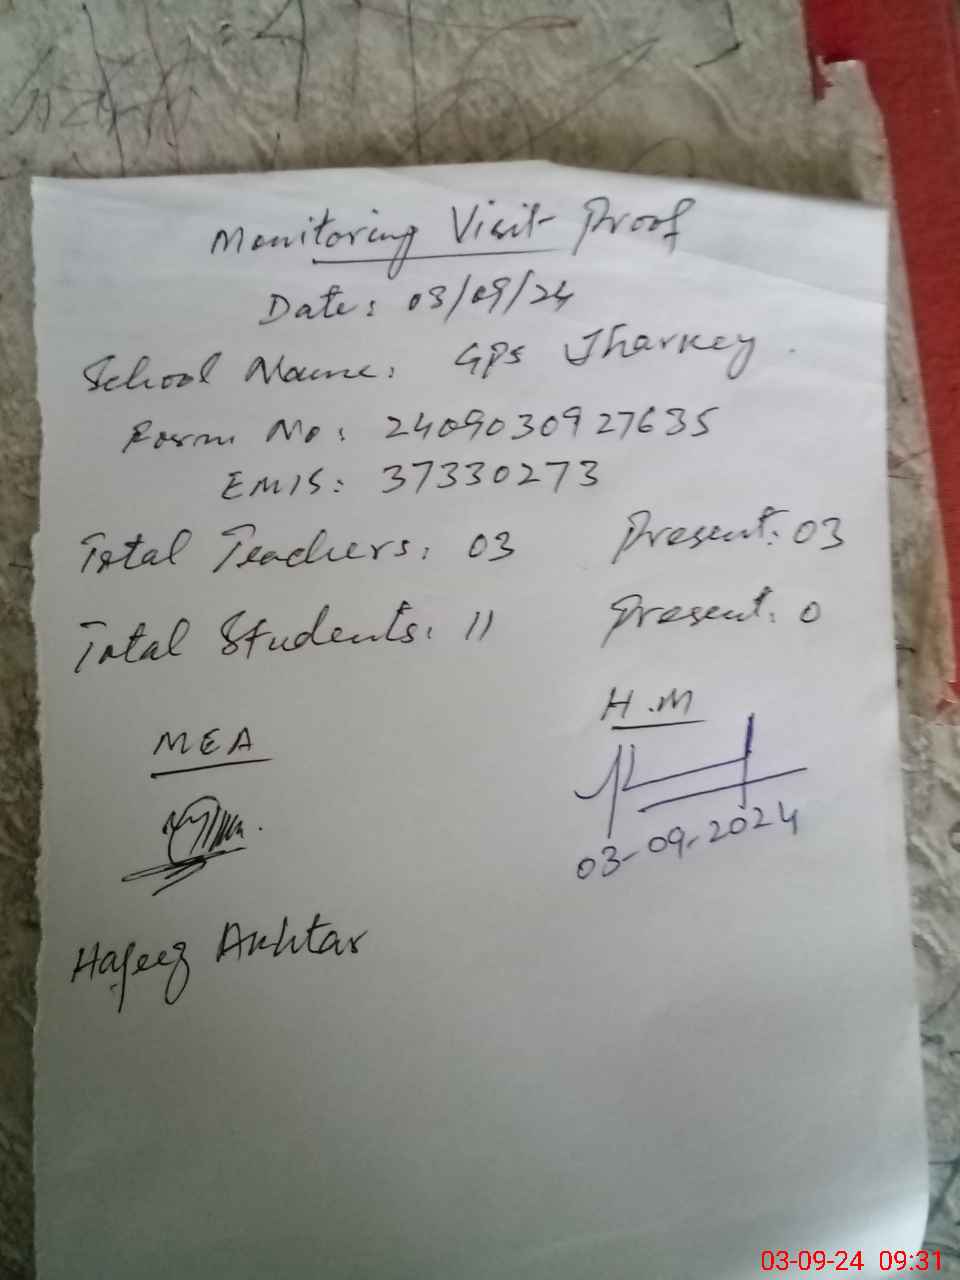 Monitoring Visit Proof
Date: 03/09/24
School Name: GPS Jharkey
Form No: 2409030927635
EMIS: 37330273
Total Teachers: 03 Present: 03
Total Students: 11 Present: 0
MEA H.M
03-09-2024
Hafeez Akhtar
03-09-24 09:31